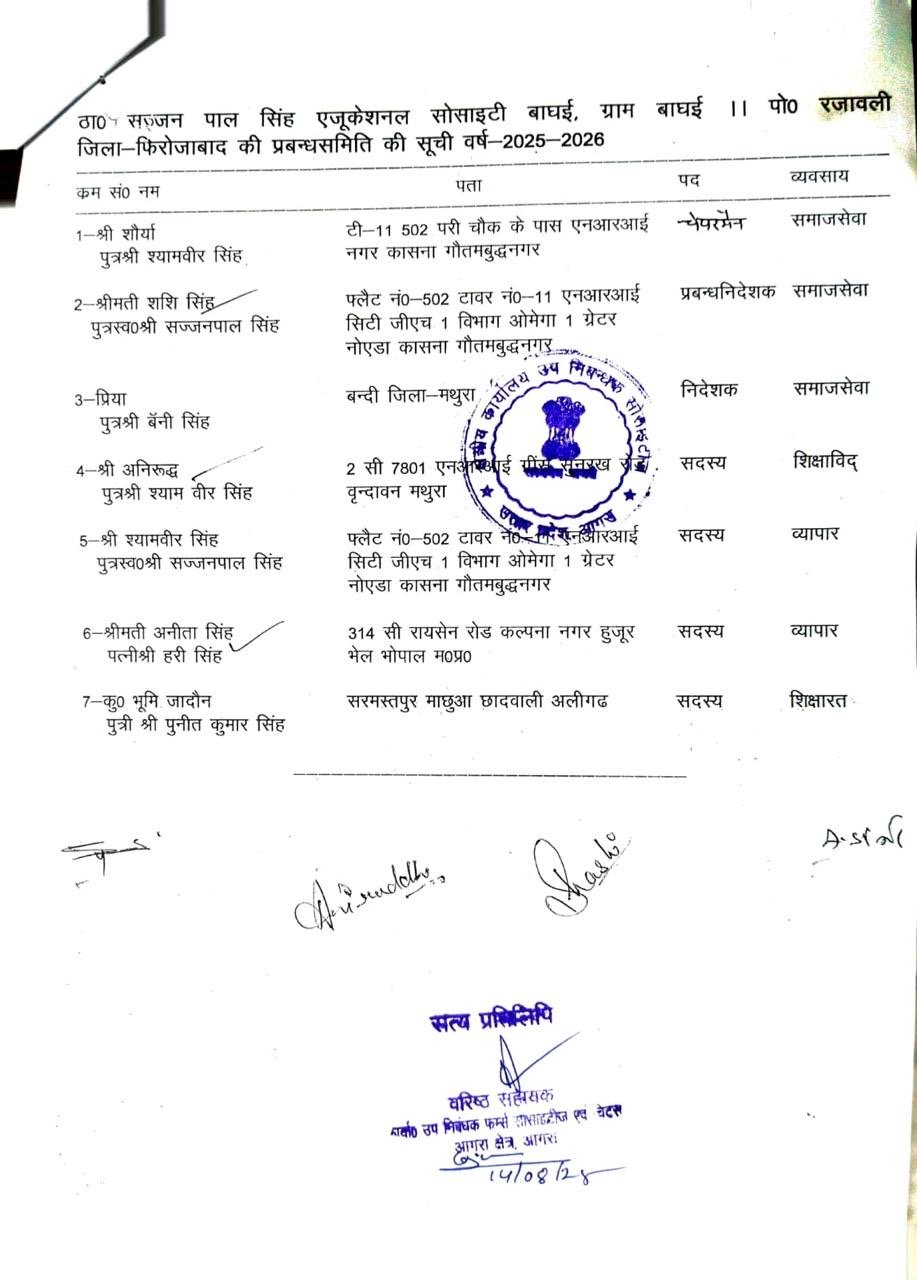 ठा0 सज्जन पाल सिंह एजूकेशनल सोसाइटी बाघई, ग्राम बाघई ।। पो0 रजावली
जिला–फिरोजाबाद की प्रबन्धसमिति की सूची वर्ष–2025–2026
कम सं0 नम पता पद व्यवसाय
1–श्री शौर्या टी–11 502 परी चौक के पास एनआरआई चेयरमैन समाजसेवा
पुत्रश्री श्यामवीर सिंह नगर कासना गौतमबुद्धनगर
2–श्रीमती शशि सिंह फ्लैट नं0–502 टावर नं0–11 एनआरआई प्रबन्धनिदेशक समाजसेवा
पुत्रस्व0श्री सज्जनपाल सिंह सिटी जीएच 1 विभाग ओमेगा 1 ग्रेटर
नोएडा कासना गौतमबुद्धनगर
3–प्रिया बन्दी जिला–मथुरा निदेशक समाजसेवा
पुत्रश्री बॅनी सिंह
4–श्री अनिरूद्ध 2 सी 7801 एनआरआई ग्रींस सुनरख रोड सदस्य शिक्षाविद्
पुत्रश्री श्याम वीर सिंह वृन्दावन मथुरा
5–श्री श्यामवीर सिंह फ्लैट नं0–502 टावर नं0–11 एनआरआई सदस्य व्यापार
पुत्रस्व0श्री सज्जनपाल सिंह सिटी जीएच 1 विभाग ओमेगा 1 ग्रेटर
नोएडा कासना गौतमबुद्धनगर
6–श्रीमती अनीता सिंह 314 सी रायसेन रोड कल्पना नगर हुजूर सदस्य व्यापार
पत्नीश्री हरी सिंह भेल भोपाल म0प्र0
7–कु0 भूमि जादौन सरमस्तपुर माछुआ छादवाली अलीगढ सदस्य शिक्षारत
पुत्री श्री पुनीत कुमार सिंह
क्षेत्रीय कार्यालय उप निबन्धक सोसाइटीज
उत्तर प्रदेश, आगरा
Aniruddh
Shashi
सत्य प्रतिलिपि
वरिष्ठ सहायक
कार्या0 उप निबंधक फर्म्स सोसाइटीज एवं चिट्स
आगरा क्षेत्र, आगरा
14/08/25